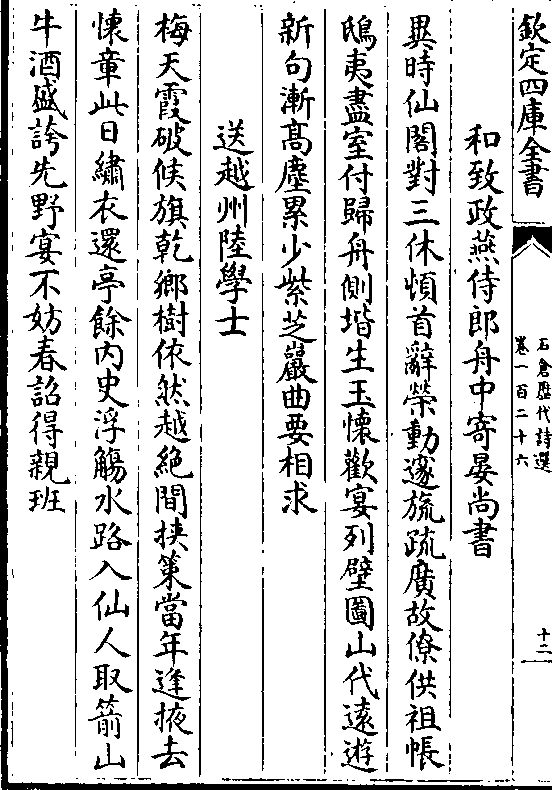 欽定四庫全書
石倉歷代詩選
卷一百二十六
十二
和致政燕侍郎舟中寄晏尚書
異時仙閣對三休頓首辭榮動邃旒疏廣故僚供祖帳
鴟夷盡室付歸舟側堦生玉懷歡宴列壁圖山代遠遊
新句漸髙塵累少紫芝巖曲要相求
送越州陸學士
梅天霞破候旗乾鄉樹依然越絶間挾䇿當年逢掖去
懷章此日繡衣還亭餘内史浮觴水路入仙人取箭山
牛酒盛誇先野宴不妨春詔得親班